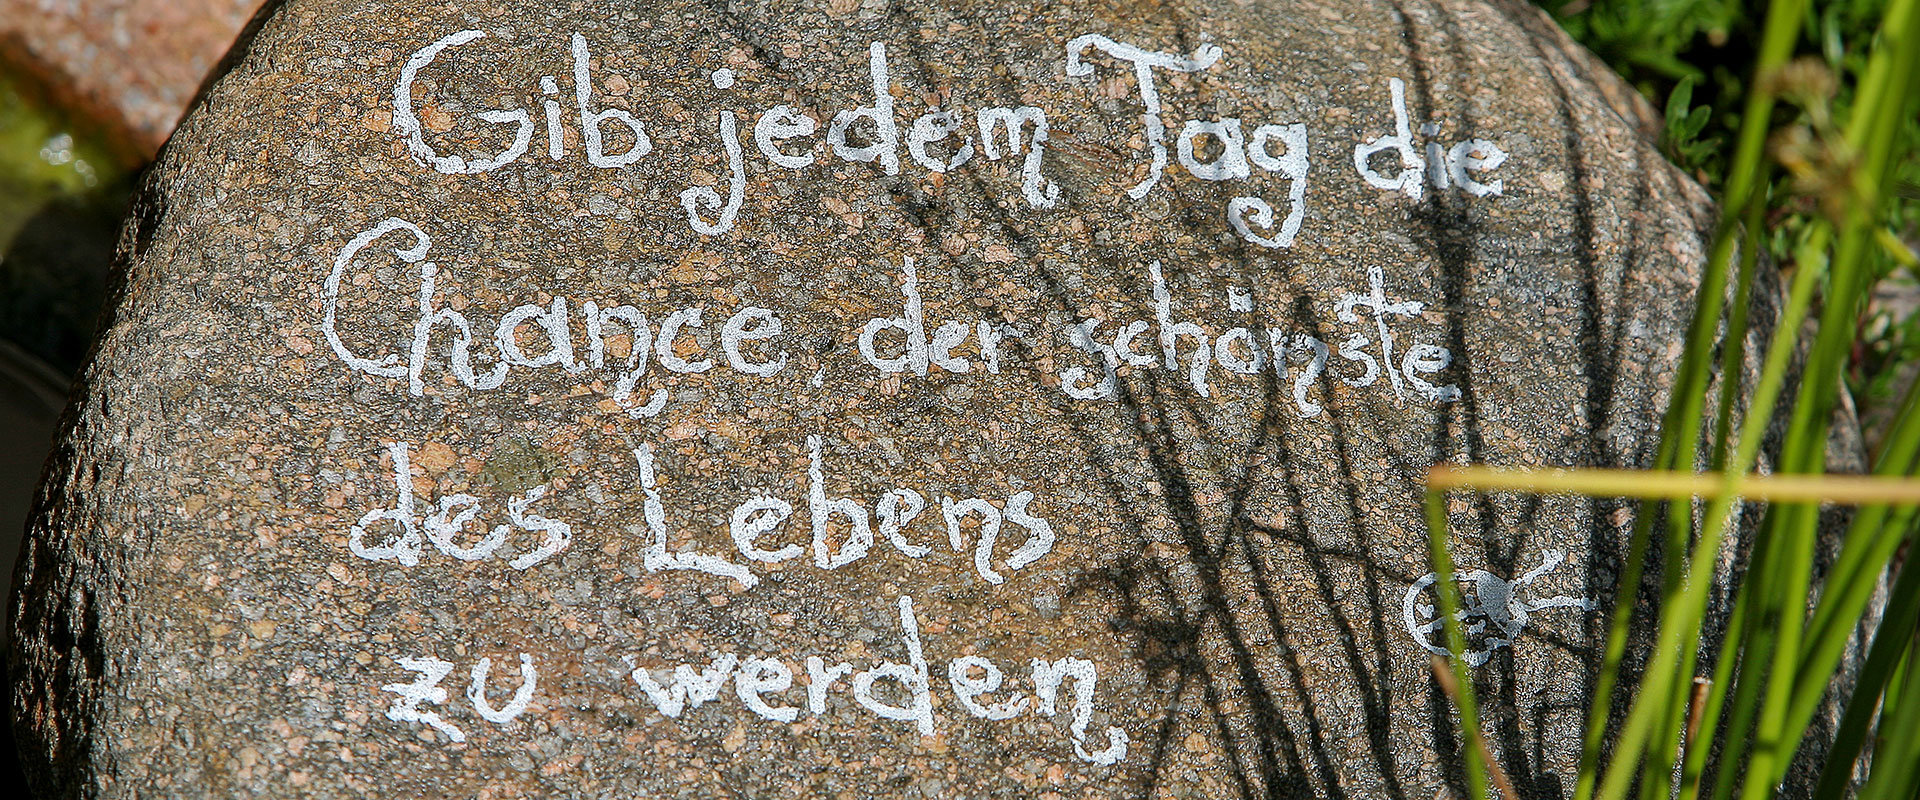 Gib jedem Tag die
Chance, der schönste
des Lebens
zu werden